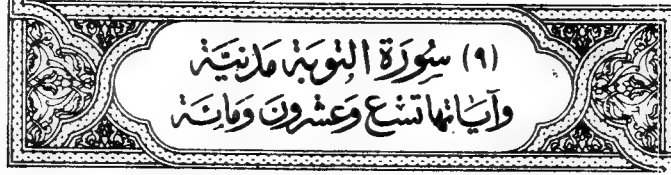 (٩) سُورَة التوبَة مَدنيَّة
وآيَاتها تسْع وَعشرون وَمائة